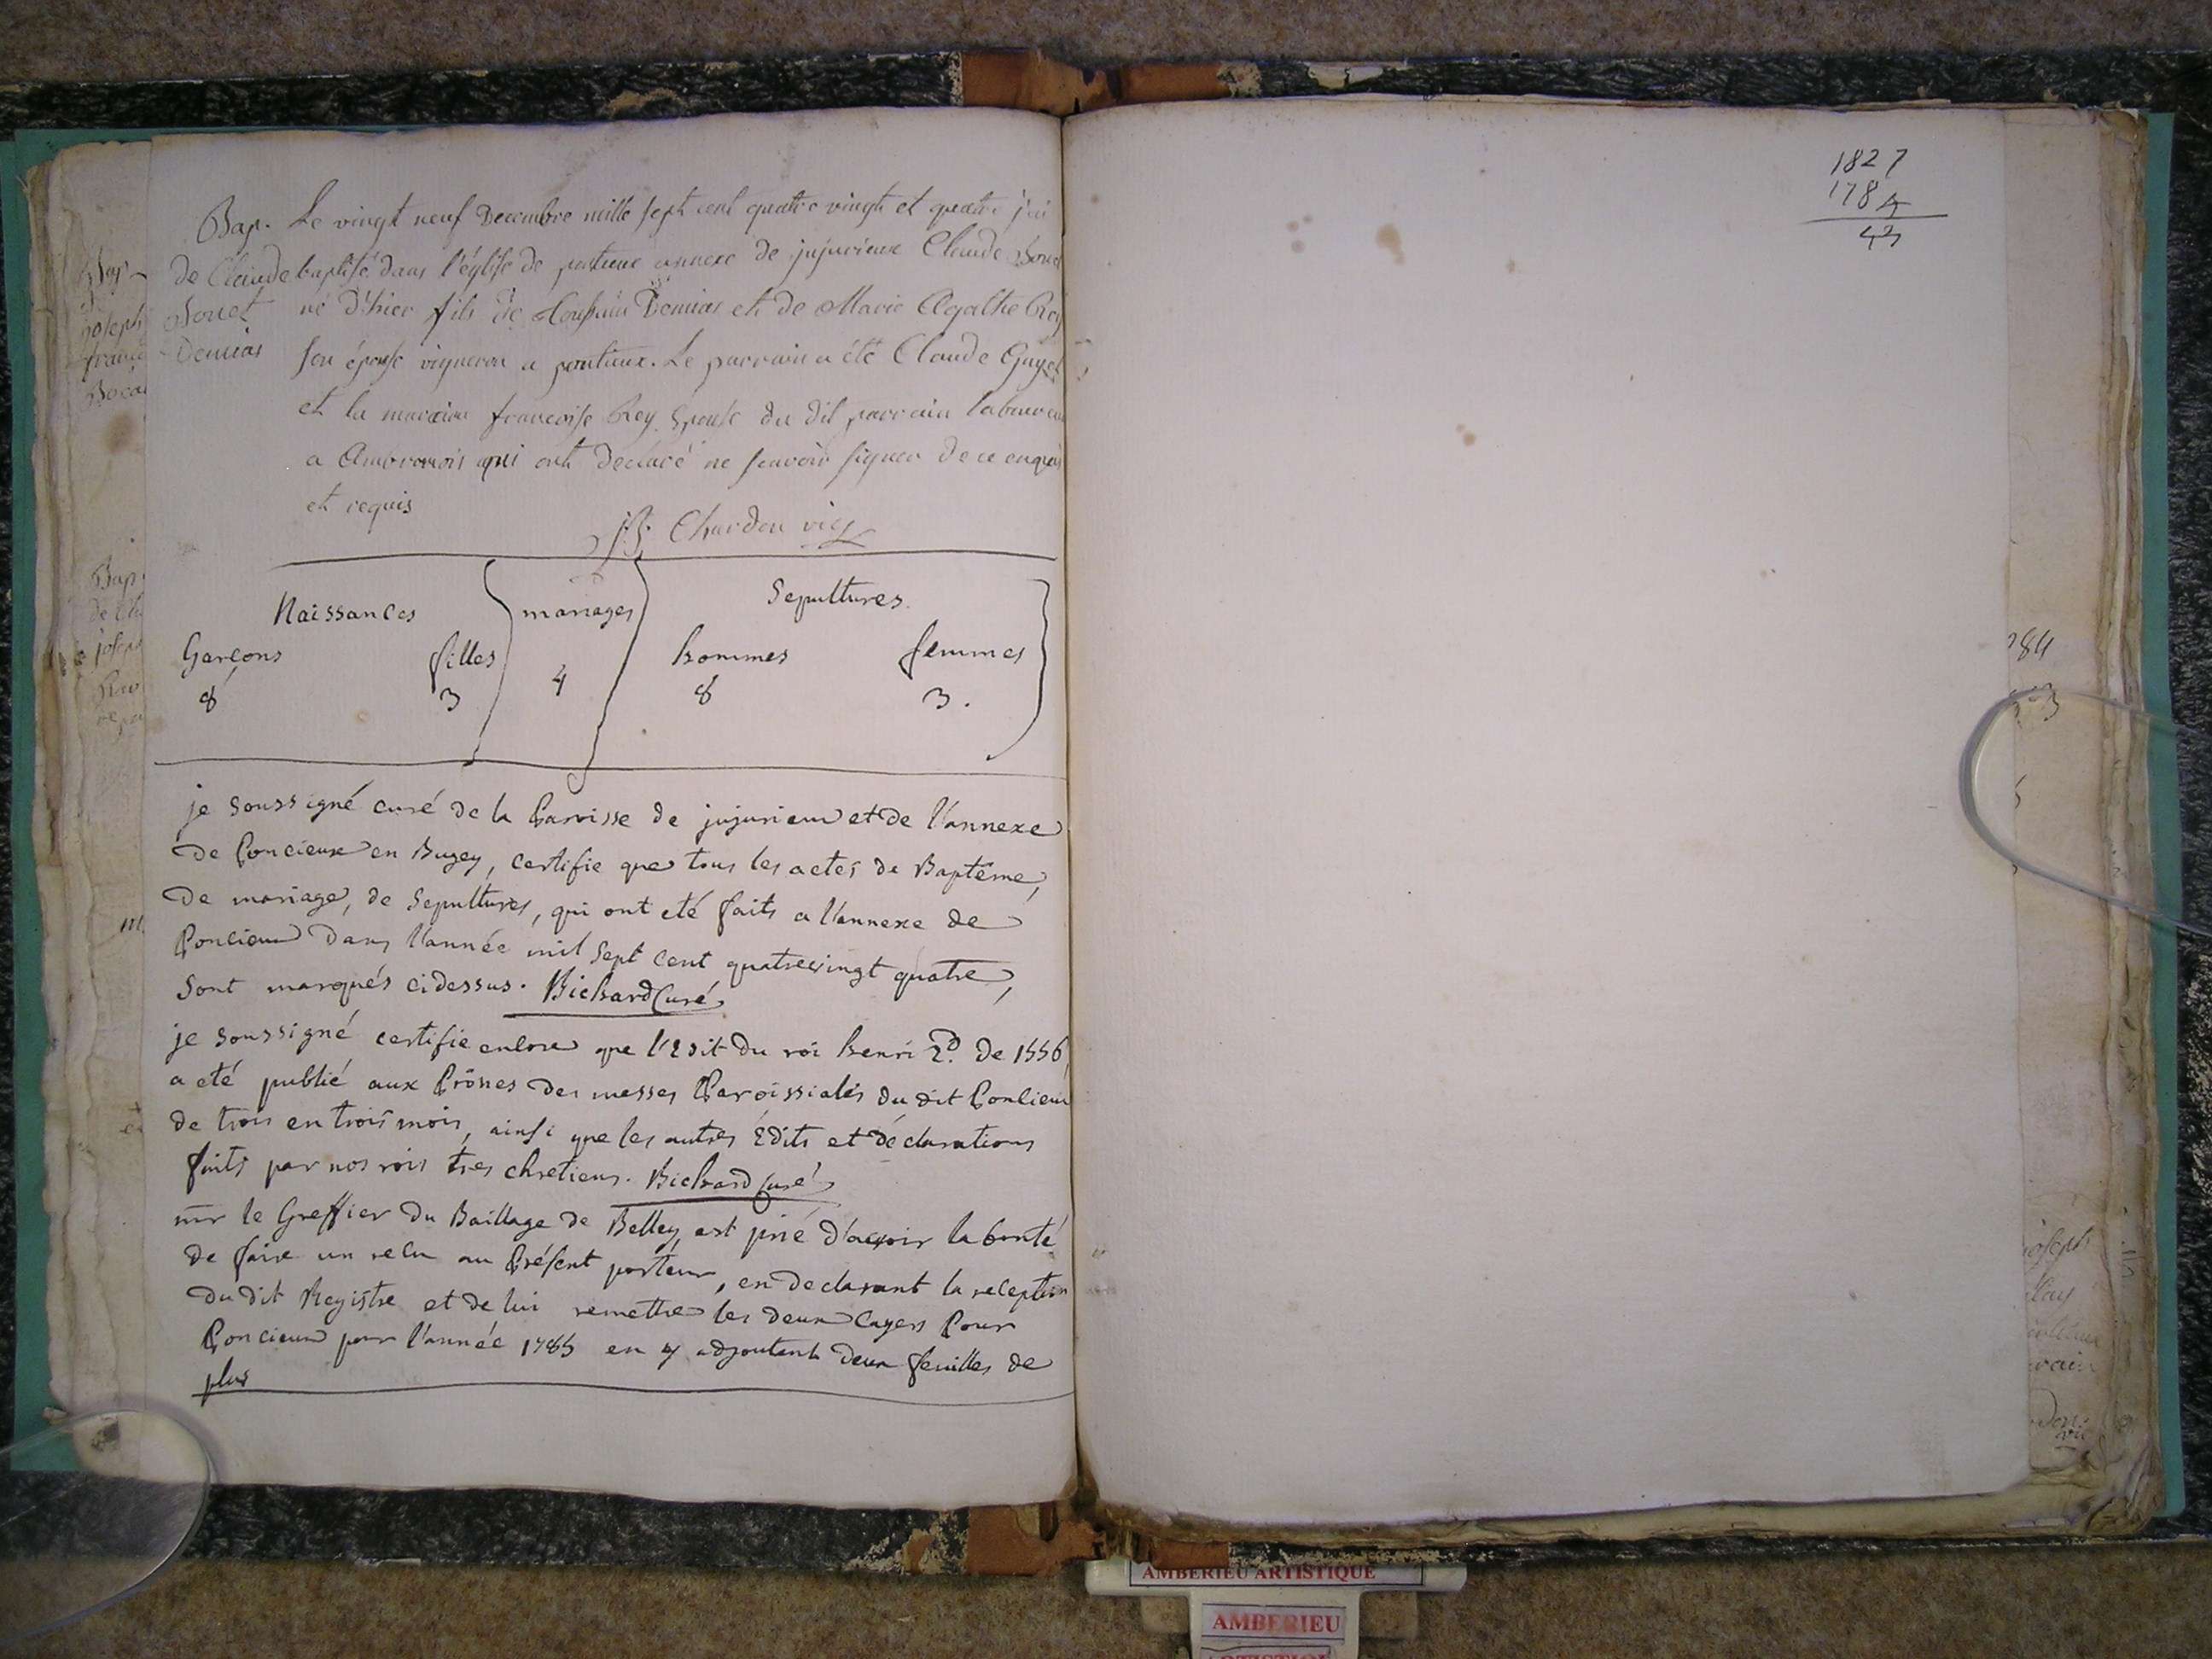 Bap. Le vingt neuf Decembre mille sept cent quatre vingt et quatre j'ai
de Claude baptisé dans l'église de pontieux annexe de jujurieux Claude Bonet
Bonet né d'hier fils de Demias et de Marie Agathe Rey
Demias son épouse vigneron a pontieux. Le parrain a été Claude Guyet
et la marraine francoise Rey Epouse du dit parrain laboureur
a Ambronois qui ont declaré ne scavoir signer de ce enquis
et requis
Chardon vic
Naissances mariages Sepultures.
Garcons filles hommes femmes
8 3 4 8 3.
je soussigné curé de la Paroisse de jujurieux et de l'annexe
de Poncieux en Bugey, certifie que tous les actes de Baptême,
de mariage, de Sepultures, qui ont eté faits a l'annexe de
Poncieux dans l'année mil Sept Cent quatrevingt quatre,
Sont marqués cidessus. Bichard Curé
je soussigné certifie encore que l'Edit du roi henri 2d. de 1556
a eté publié aux Prônes des messes Paroissiales du dit Poncieux
de trois en trois mois, ainsi que les autres Edits et déclarations
faits par nos rois tres chretiens. Bichard Curé
mr le Greffier du Baillage de Belley, est prié d'avoir la bonté
de faire un recu au Présent porteur, en declarant la reception
du dit Registre et de lui remettre les deux Cayers Pour
Poncieux pour l'année 1785 en y adjoutant deux feuilles de
plus
1827
1784
43
joseph
AMBERIEU ARTISTIQUE
AMBERIEU
ARTISTIQUE